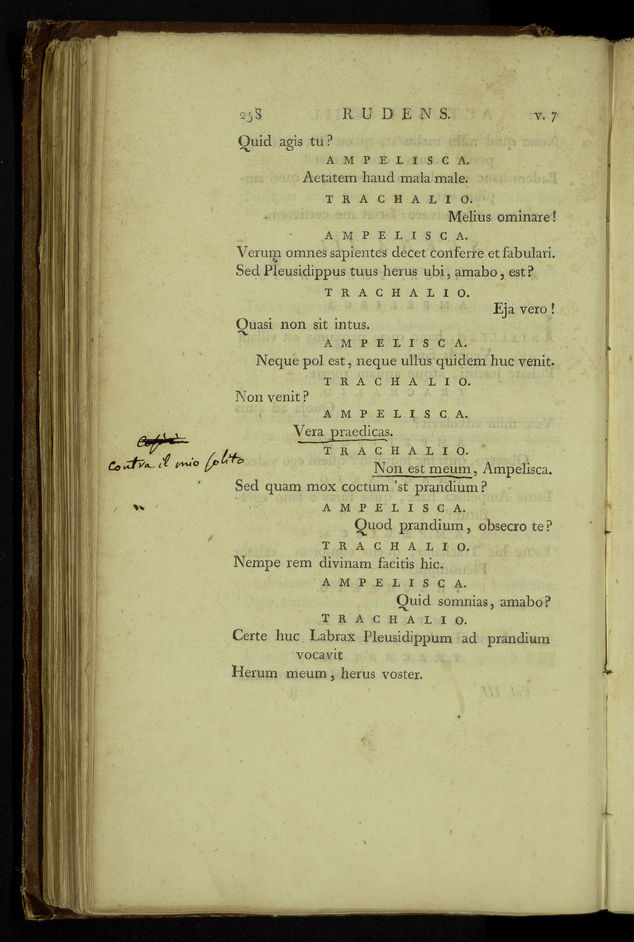 258 RUDENS. v. 7
Quid agis tu?
AMPELISCA.
Aetatem haud mala male.
TRACHALIO.
Melius ominare!
AMPELISCA.
Verum omnes sapientes decet conferre et fabulari.
Sed Pleusidippus tuus herus ubi, amabo, est?
TRACHALIO.
Eja vero!
Quasi non sit intus.
AMPELISCA.
Neque pol est, neque ullus quidem huc venit.
TRACHALIO.
Non venit?
AMPELISCA.
Vera praedicas.
TRACHALIO.
contra il mio solito
Non est meum, Ampelisca.
Sed quam mox coctum 'st prandium?
AMPELISCA.
Quod prandium, obsecro te?
TRACHALIO.
Nempe rem divinam facitis hic.
AMPELISCA.
Quid somnias, amabo?
TRACHALIO.
Certe huc Labrax Pleusidippum ad prandium
vocavit
Herum meum, herus voster.